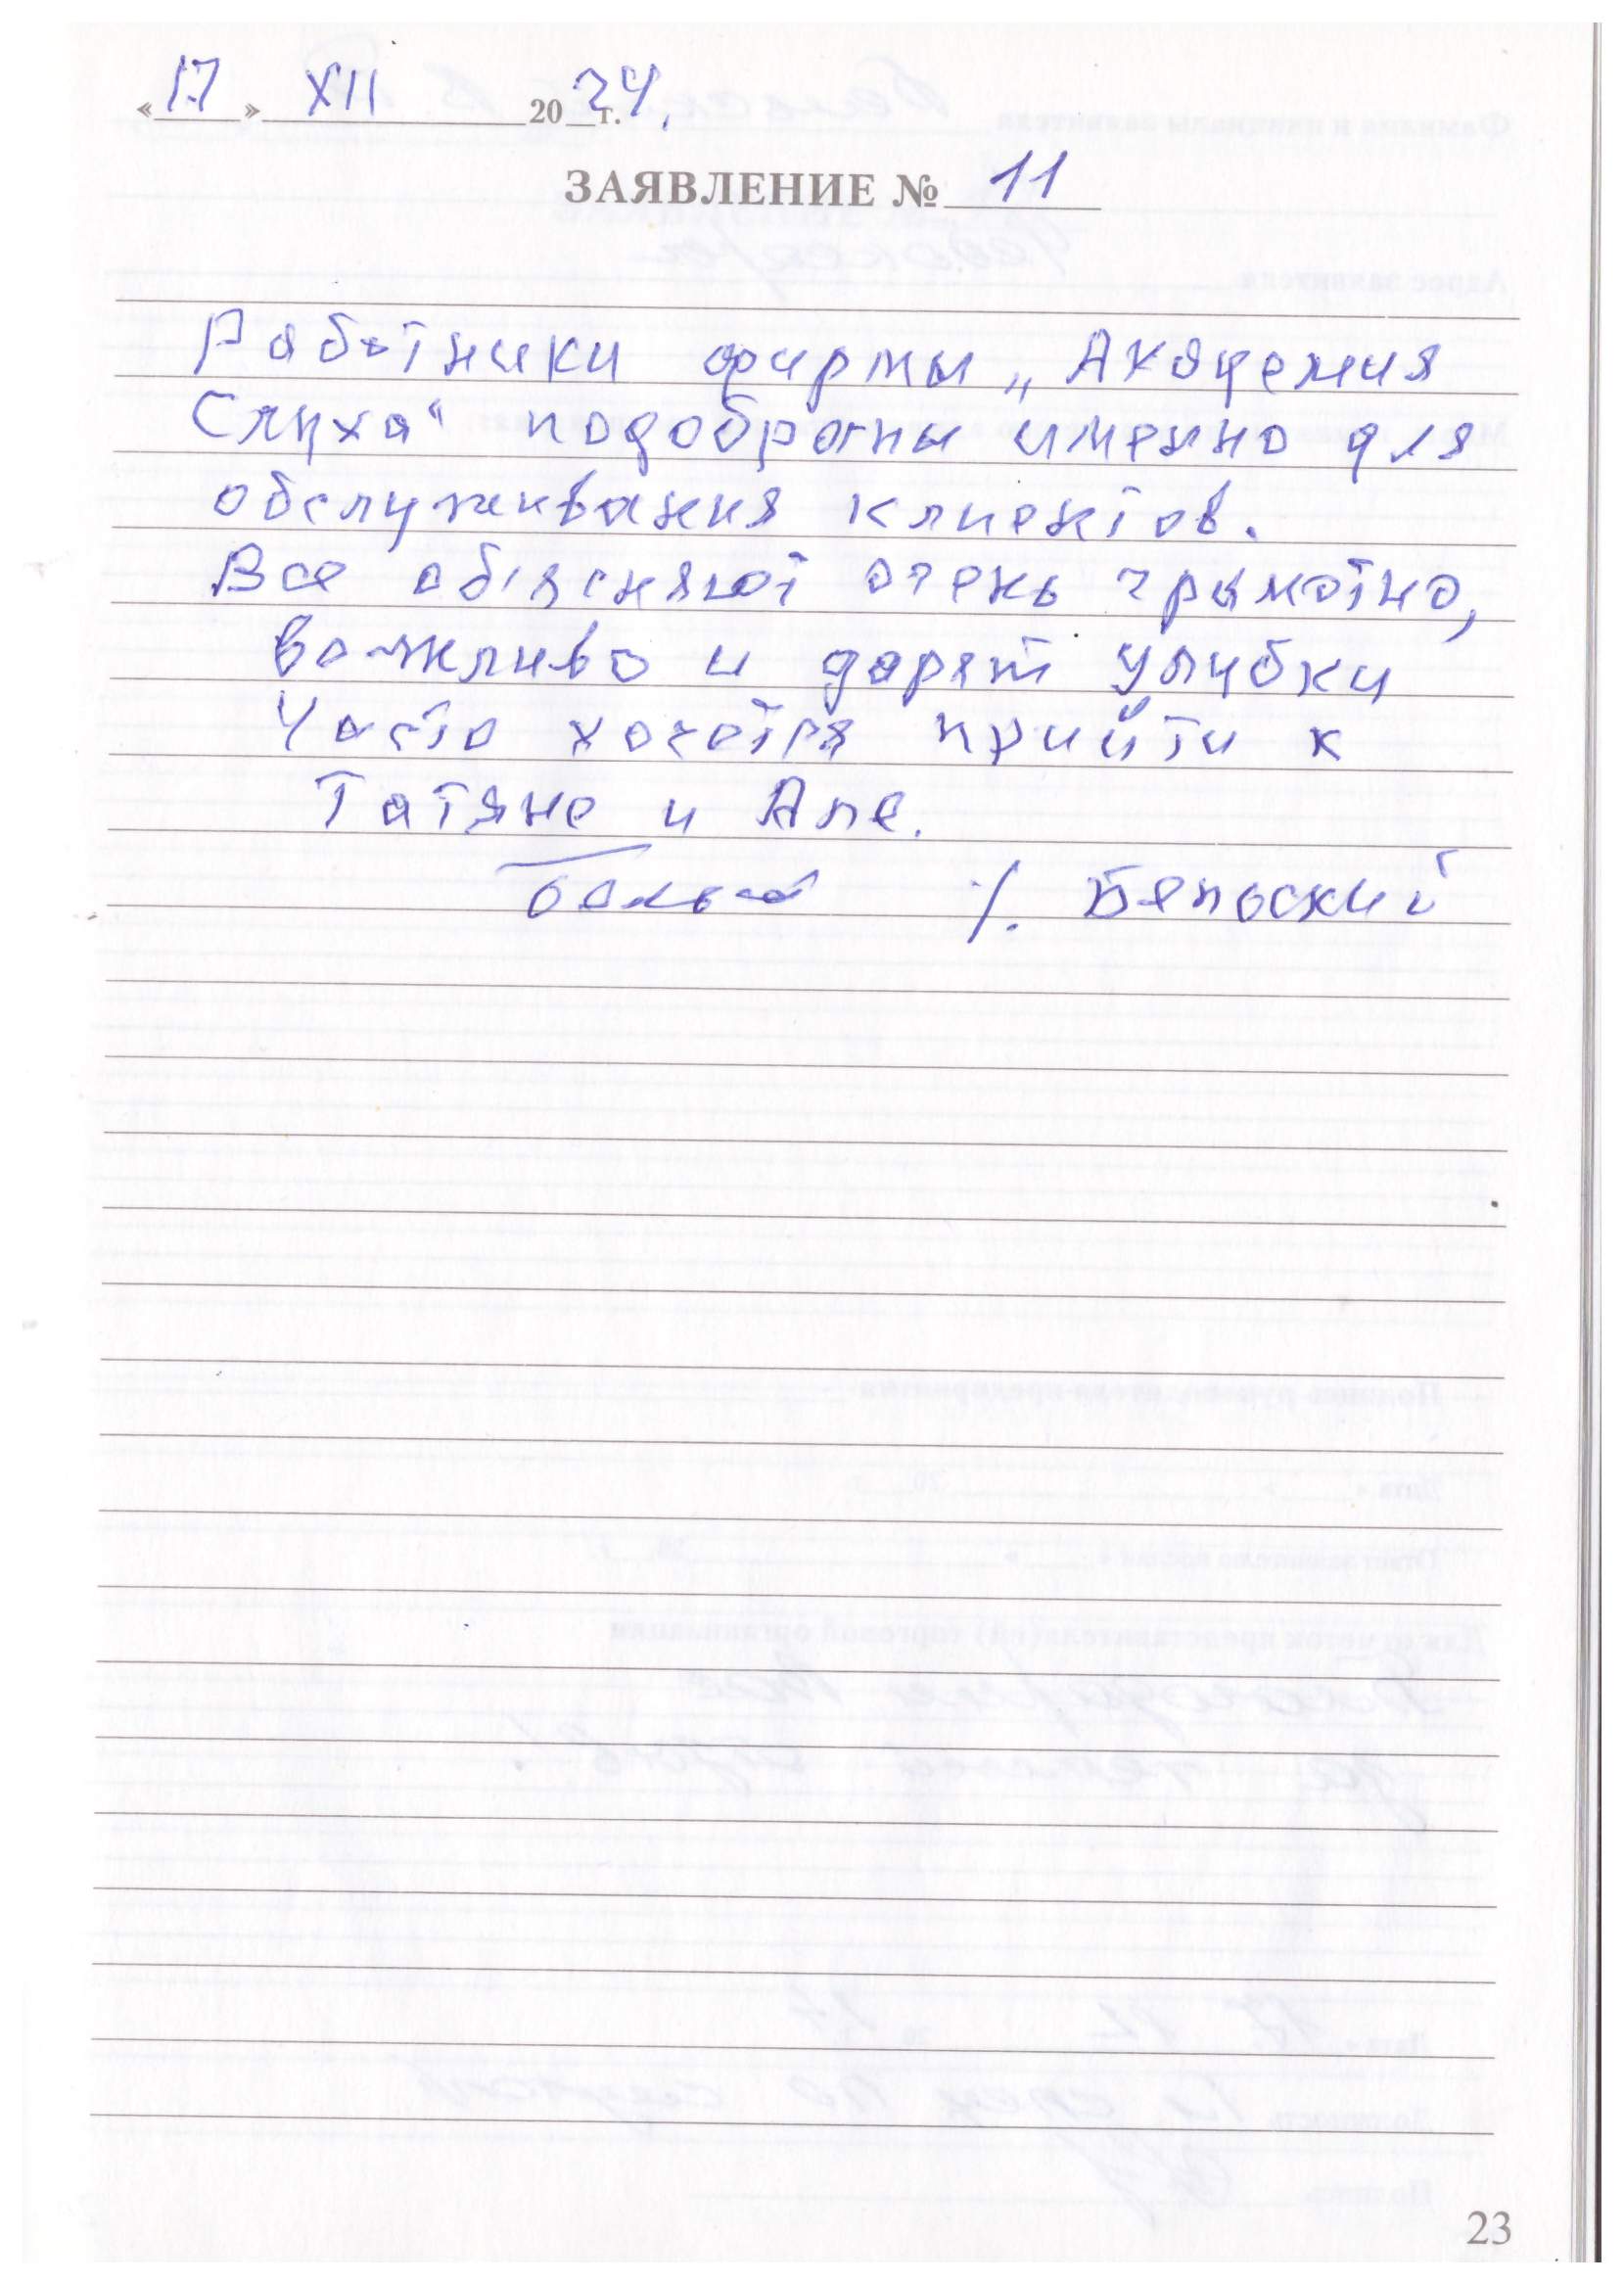 «17» XII 2024 г.
ЗАЯВЛЕНИЕ № 11
Работники фирмы „Академия
Слуха“ подобраны именно для
обслуживания клиентов.
Все объясняют очень грамотно,
вежливо и дарят улыбки
Часто хочется прийти к
Татяне и Але.
/. Бельский
23